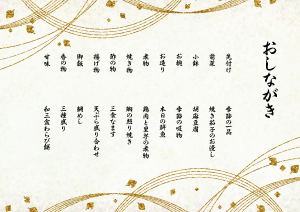 おしながき
先付け　季節の一品
前菜　焼き茄子のお浸し
小鉢　胡麻豆腐
お椀　季節の吸物
お造り　本日の鮮魚
煮物　鶏肉と里芋の煮物
焼き物　鯛の照り焼き
酢の物　三色なます
揚げ物　天ぷら盛り合わせ
御飯　鯛めし
香の物　三種盛り
甘味　和三盆わらび餅